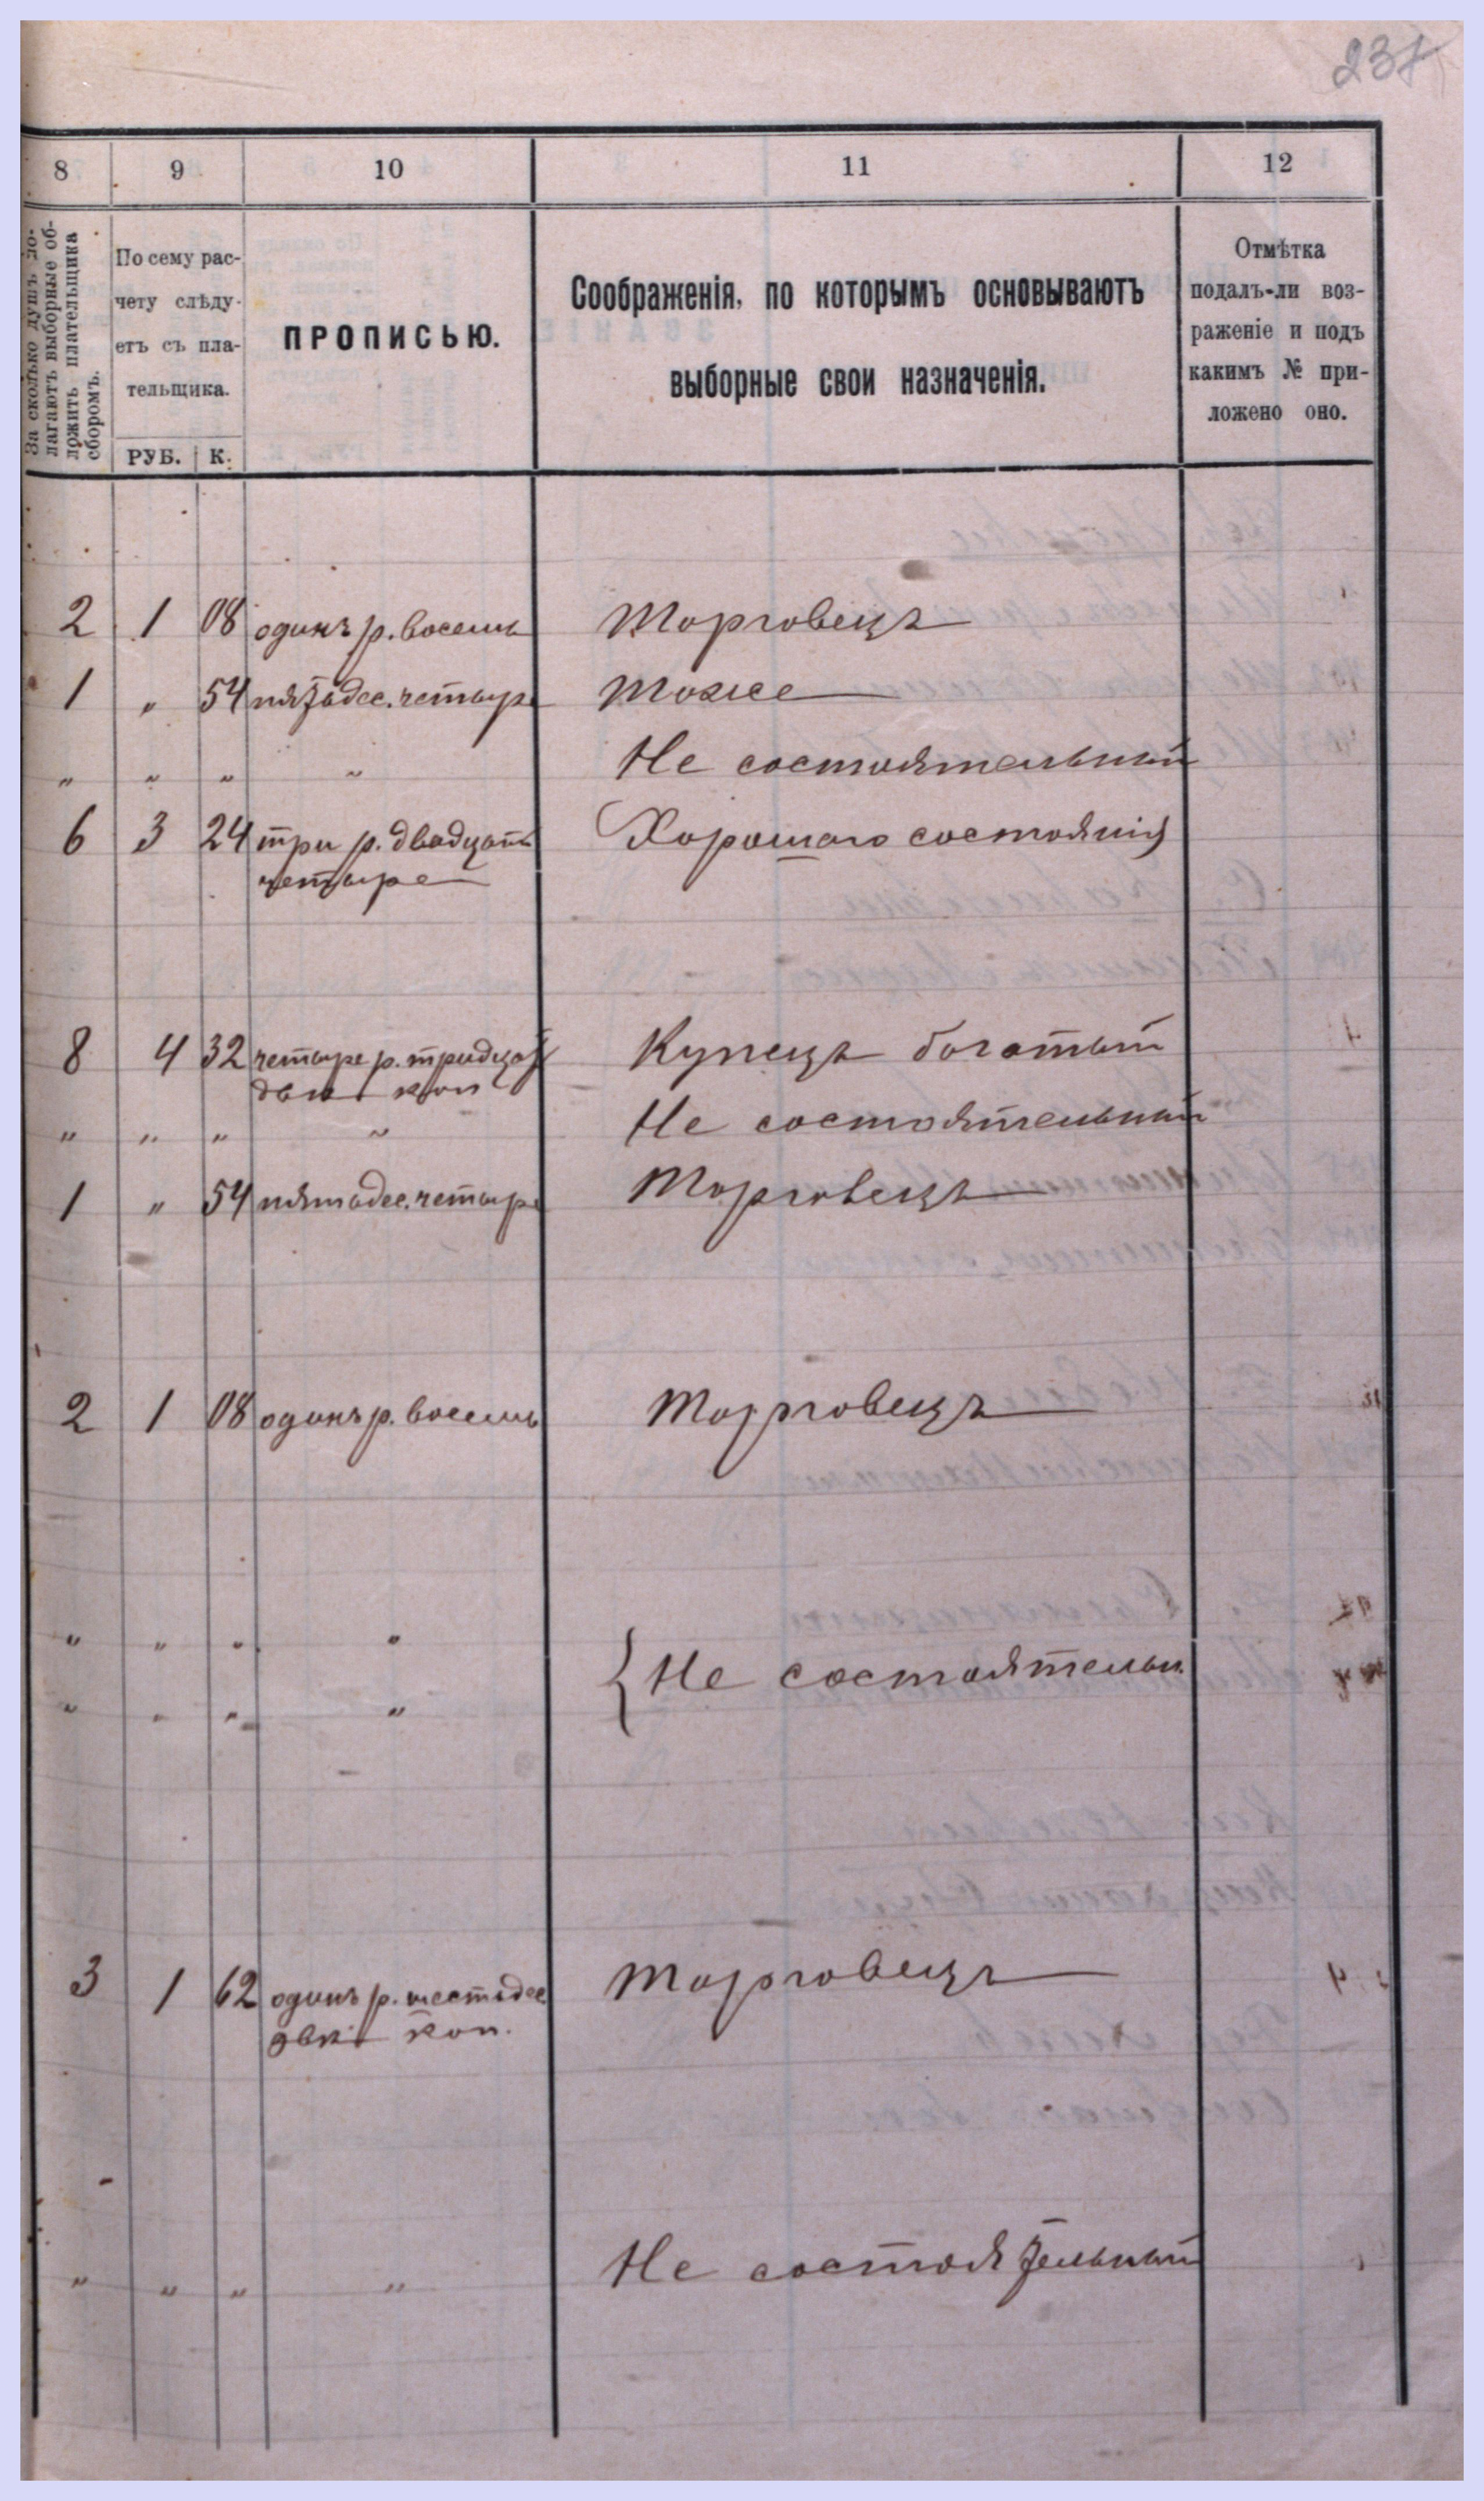 237
8 9 10 11 12
За сколько душъ по-
лагаютъ выборные об-
ложить плательщика
сборомъ.
По сему рас-
чету слѣду-
етъ съ пла-
тельщика.
РУБ. К.
ПРОПИСЬЮ.
Соображенія, по которымъ основываютъ
выборные свои назначенія.
Отмѣтка
подалъ-ли воз-
раженіе и подъ
какимъ № при-
ложено оно.
2 1 08 одинъ р. восемь Торговецъ
1 „ 54 пятьдес. четыре Тоже
„ „ „ „ Не состоятельный
6 3 24 три р. двадцать Хорошаго состоянія
четыре
8 4 32 четыре р. тридцать Купецъ богатый
две коп
„ „ „ „ Не состоятельный
1 „ 54 пятьдес. четыре Торговецъ
2 1 08 одинъ р. восемь Торговецъ
„ „ „ „
{ Не состоятельн.
„ „ „ „
3 1 62 одинъ р. шестьдес Торговецъ
две коп.
„ „ „ „ Не состоятельный